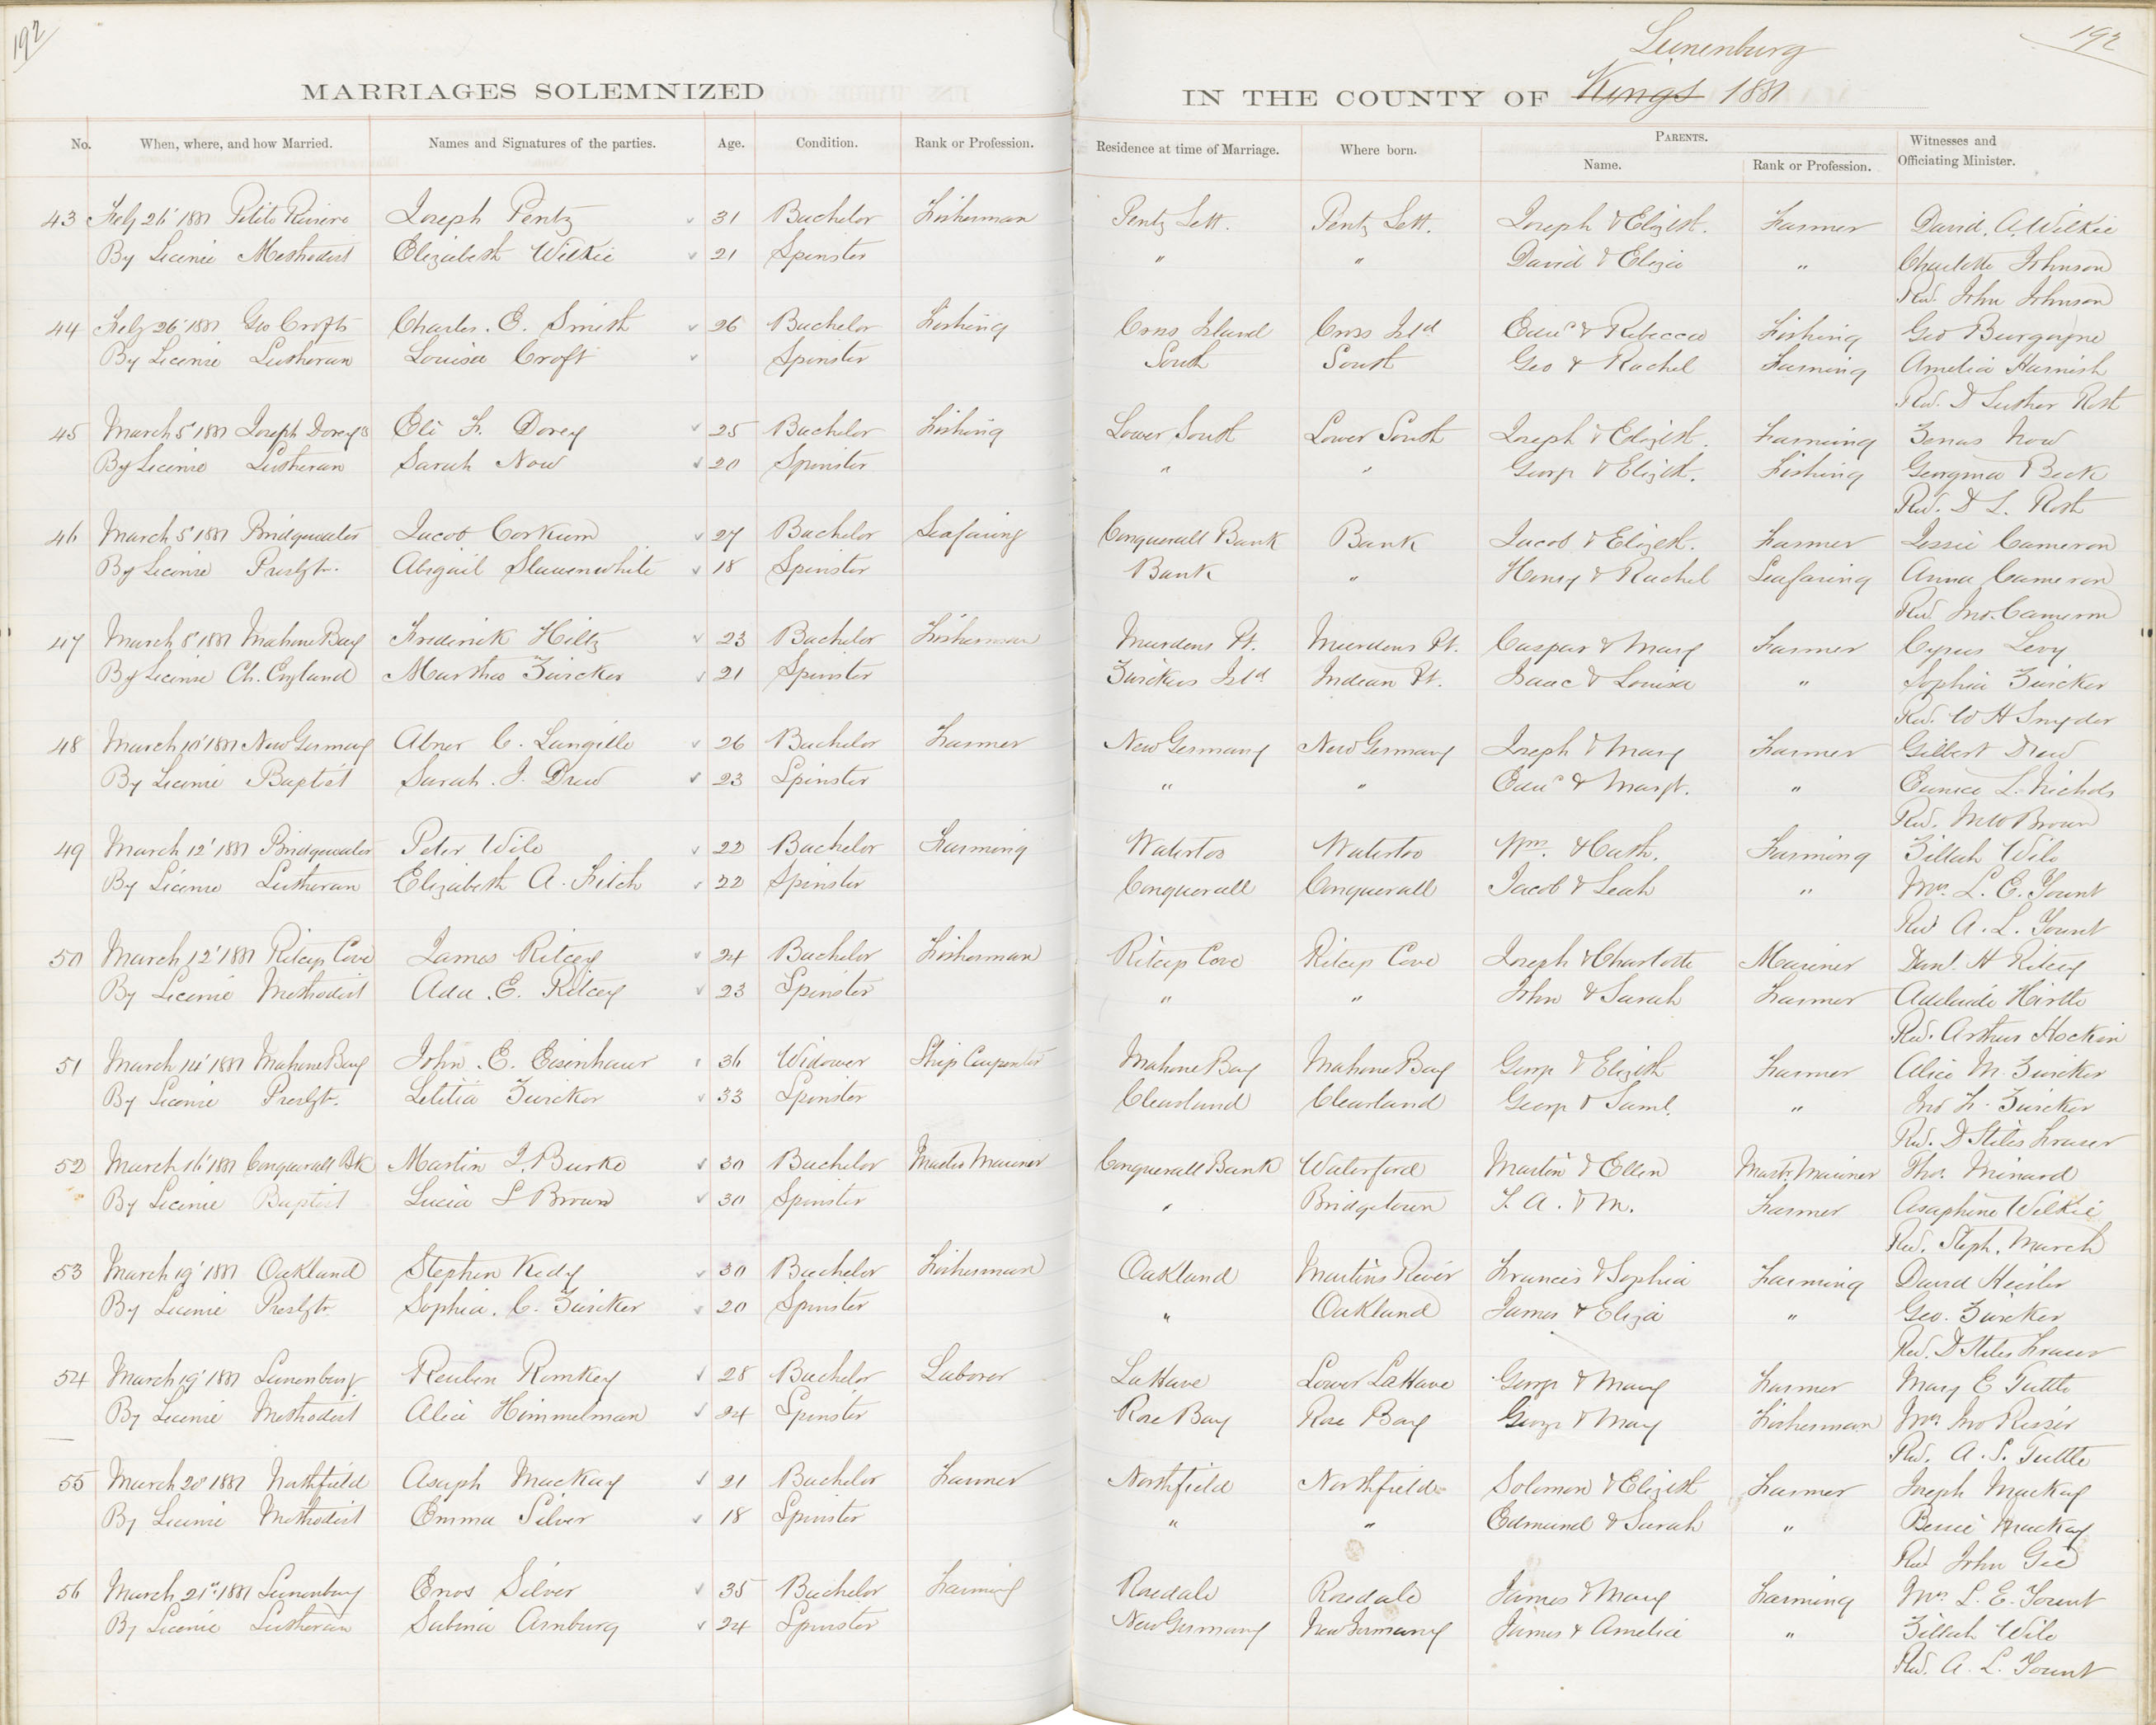 192
192
Lunenburg
MARRIAGES SOLEMNIZED IN THE COUNTY OF Kings 1881
No. When, where, and how Married. Names and Signatures of the parties. Age. Condition. Rank or Profession. Residence at time of Marriage. Where born. PARENTS. Witnesses and
Name. Rank or Profession. Officiating Minister.
43 Feby 26' 1881 Petite Riviere Joseph Pentz 31 Bachelor Fisherman Pentz Sett. Pentz Sett. Joseph & Elizth. Farmer David. A. Wilkie
By License Methodist Elizabeth Wilkie 21 Spinster " " David & Eliza " Charlotte Johnson
Rev. John Johnson
44 Feby 26' 1881 Geo Crofts Charles. E. Smith 26 Bachelor Fishing Cross Island Cross Isld Edwd & Rebecca Fishing Geo Burgoyne
By License Lutheran Louisa Croft Spinster South South Geo & Rachel Farming Amelia Harnish
Rev. D Luther Roth
45 March 5' 1881 Joseph Dorey's Eli F. Dorey 25 Bachelor Fishing Lower South Lower South Joseph & Elizth. Farming Zenas Now
By License Lutheran Sarah Now 20 Spinster " " George & Elizth. Fishing Georgina Beck
Rev. D L. Roth
46 March 5' 1881 Bridgewater Jacob Corkum 27 Bachelor Seafaring Conquerall Bank Bank Jacob & Elizth. Farmer Jessie Cameron
By License Presbytr. Abigail Slauenwhite 18 Spinster Bank " Henry & Rachel Seafaring Anna Cameron
Rev. Jno. Cameron
47 March 8' 1881 Mahone Bay Frederick Hiltz 23 Bachelor Fisherman Murdens Pt. Murdens Pt. Caspar & Mary Farmer Cyrus Levy
By License Ch. England Martha Zwicker 21 Spinster Zwickers Isld Indian Pt. Isaac & Louisa " Sophia Zwicker
Rev. W H Snyder
48 March 10' 1881 New Germany Abner C. Langille 26 Bachelor Farmer New Germany New Germany Joseph & Mary Farmer Gilbert Drew
By License Baptist Sarah. J. Drew 23 Spinster " " Edwd & Margt. " Eunice L. Nichols
Rev. M W Brown
49 March 12' 1881 Bridgewater Peter Wile 22 Bachelor Farming Waterloo Waterloo Wm. & Cath. Farming Zillah Wile
By License Lutheran Elizabeth A. Fitch 22 Spinster Conquerall Conquerall Jacob & Leah " Mrs. L. E. Yount
Rev A. L. Yount
50 March 12' 1881 Ritcey Cove James Ritcey 24 Bachelor Fisherman Ritcey Cove Ritcey Cove Joseph & Charlotte Mariner Danl. H Ritcey
By License Methodist Ada. E. Ritcey 23 Spinster " " John & Sarah Farmer Adelaide Hirtle
Rev. Arthur Hockin
51 March 14' 1881 Mahone Bay John. E. Eisenhaur 36 Widower Ship Carpenter Mahone Bay Mahone Bay George & Elizth Farmer Alice M. Zwicker
By License Presbytr. Letitia Zwicker 33 Spinster Clearland Clearland George & Saml. " Jno F. Zwicker
Rev. D Stiles Fraser
52 March 16' 1881 Conquerall Bk Martin J. Burke 30 Bachelor Master Mariner Conquerall Bank Waterford Martin & Ellen Mastr. Mariner Thos. Minard
By License Baptist Lucia S Brown 30 Spinster " Bridgetown S. A. & M. Farmer Asaphine Wilkie
Rev. Steph. March
53 March 19' 1881 Oakland Stephen Kedy 30 Bachelor Fisherman Oakland Martins River Francis & Sophia Farming David Heisler
By License Presbytr Sophia. C. Zwicker 20 Spinster " Oakland James & Eliza " Geo. Zwicker
Rev. D Stiles Fraser
54 March 19' 1881 Lunenburg Reuben Romkey 28 Bachelor Laborer LaHave Lower LaHave George & Mary Farmer Mary E Tuttle
By License Methodist Alice Himmelman 24 Spinster Rose Bay Rose Bay George & Mary Fisherman Mrs. Jno Risser
Rev. A. S. Tuttle
55 March 20' 1881 Northfield Asaph MacKay 21 Bachelor Farmer Northfield Northfield Solomon & Elizth Farmer Joseph MacKay
By License Methodist Emma Silver 18 Spinster " " Edmund & Sarah " Bessie MacKay
Rev John Gee
56 March 21st 1881 Lunenburg Enos Silver 35 Bachelor Farming Rosedale Rosedale James & Mary Farming Mrs L. E. Yount
By License Lutheran Sabina Arnburg 24 Spinster New Germany New Germany James & Amelia " Zillah Wile
Rev. A. L. Yount